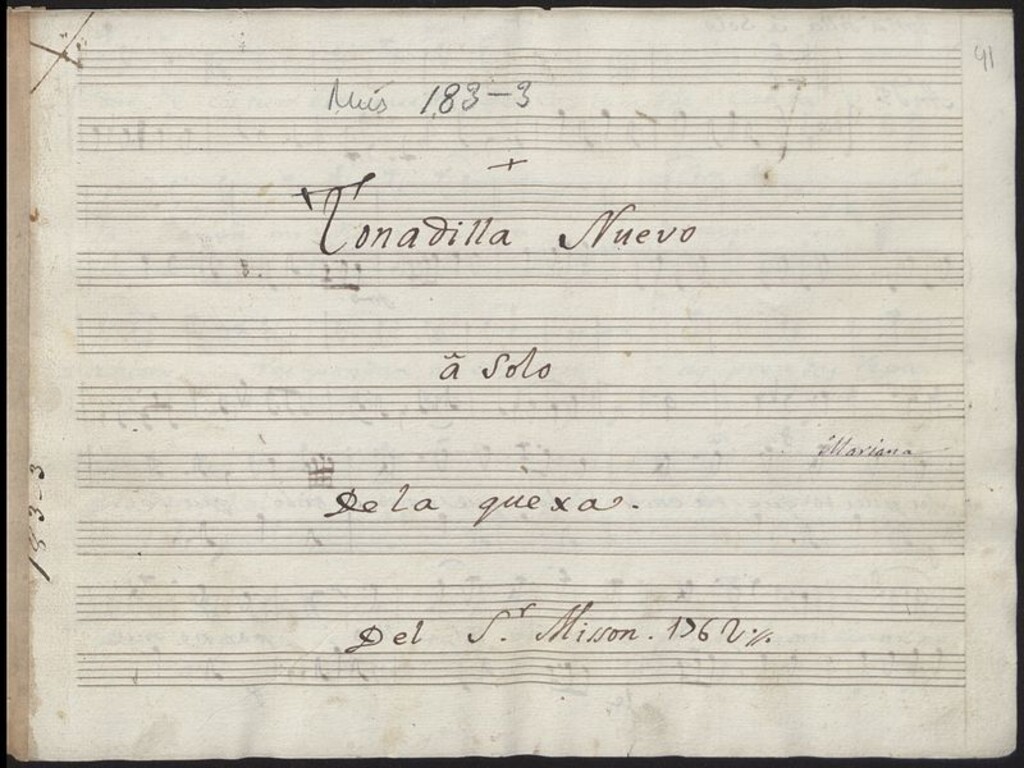 41
Mus 183-3
+
Tonadilla Nuevo
â Solo
Mariana
De la quexa.
Del S.r Misson. 1762
183-3